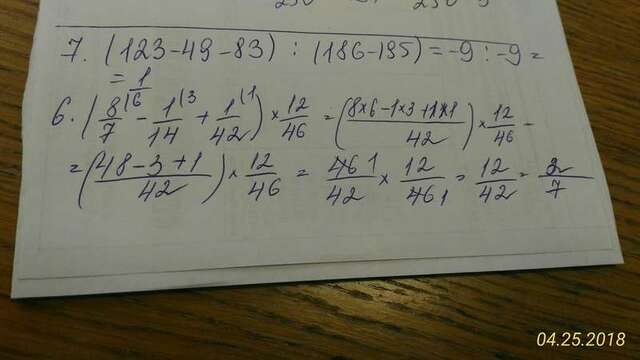 7. (123-49-83) : (186-195) = -9 : -9 =
= 1
6. (8/7 \6 - 1/14 \3 + 1/42 \1) × 12/46 = ((8×6-1×3+1×1)/42) × 12/46 -
= ((48-3+1)/42) × 12/46 = 46 1/42 × 12/46 1 = 12/42 = 2/7
04.25.2018